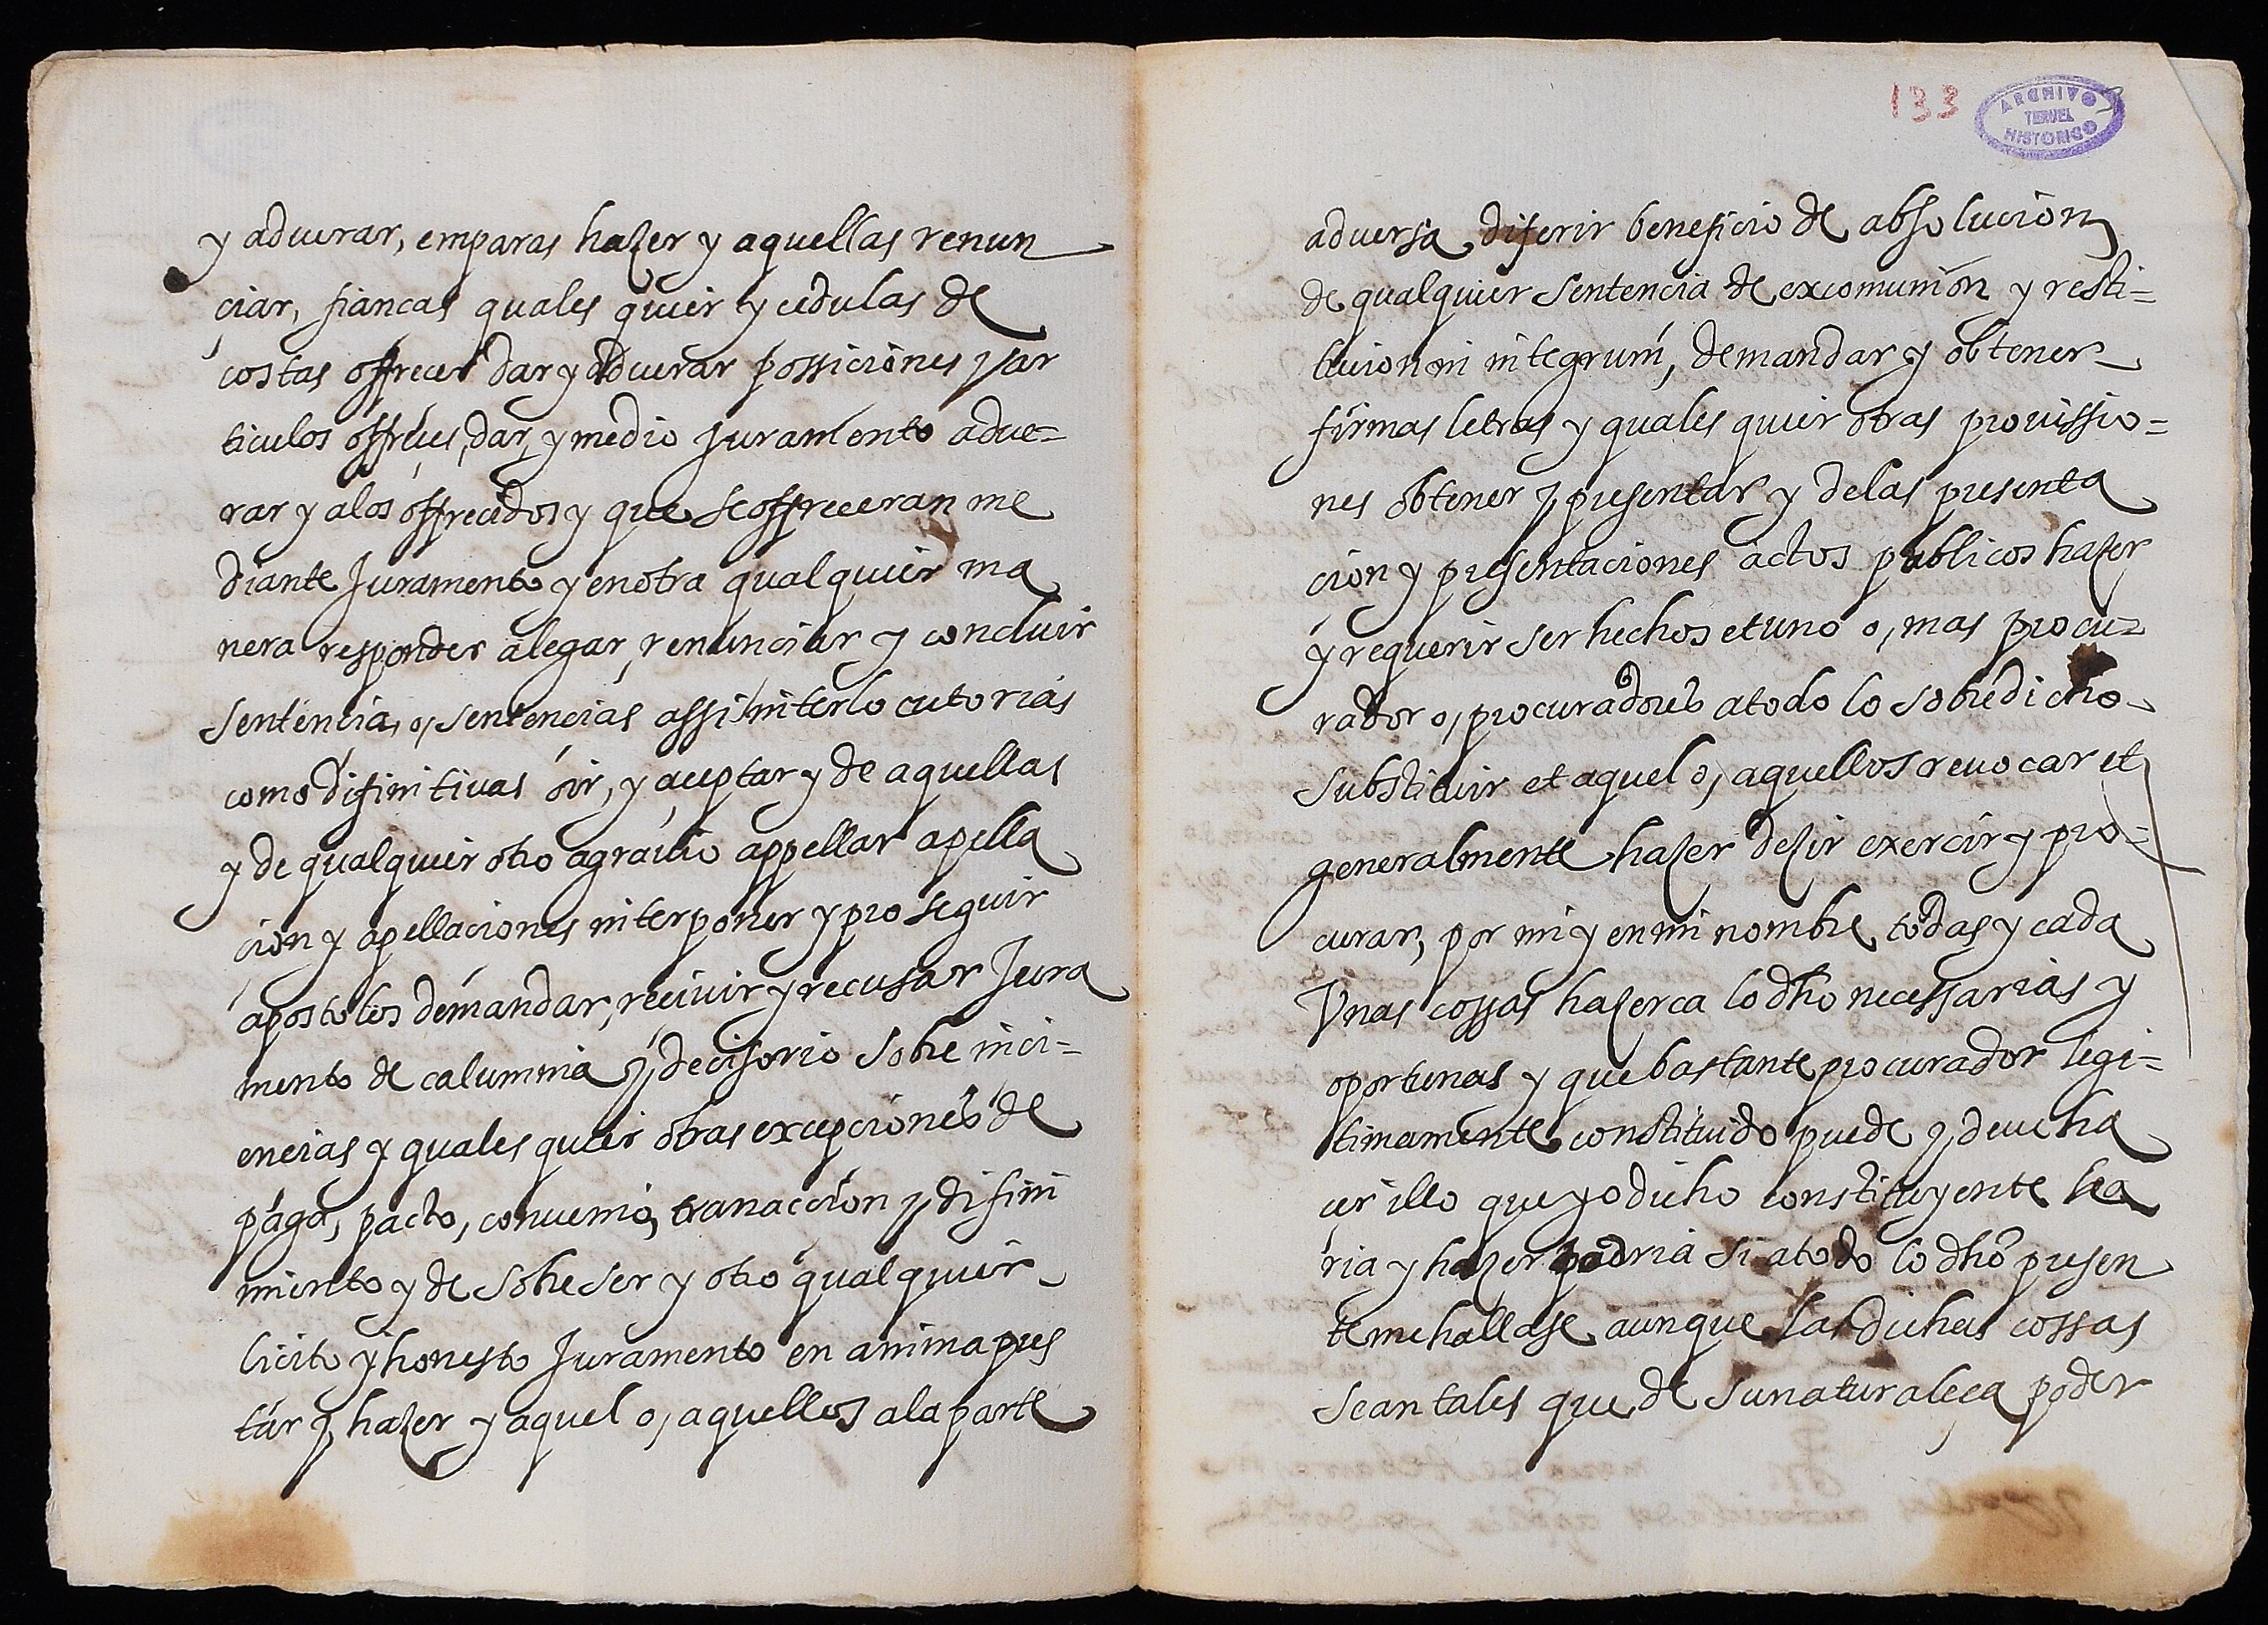 y aduerar, emparas hazer y aquellas renun
ciar, fiancas quales quier y cedulas de
costas offrecer dar y aduerar possiciones y ar
ticulos offreçer, dar, y medio Juramento adue=
rar y alos offrecidos y que se offreceran me
diante Juramento y en otra qualquier ma
nera responder alegar, renunciar y concluir
sentencia, o, sentencias assi interlocutorias
como difinitiuas oir, y aceptar y de aquellas
y de qualquier otro agrauio appellar apella
cion y apellaciones interponer y proseguir
apostolos demandar, reciuir y recusar Jura
mento de calumnia y decisorio sobre inci=
encias y quales quier otras excepciones de
paga, pacto, conuenio, tranaccion y difini
miento y de sobreser y otro qualquier
licito y honesto Juramento en anima pres
tar y hazer y aquel o, aquellos ala parte
133
ARCHIVO
TERUEL
HISTORICO
aduersa diferir beneficio de absolucion
de qualquier sentencia de excomunion y resti=
tucion in integrum, demandar y obtener
firmas letras y quales quier otras prouissio=
nes obtener y presentar y delas presenta
cion y presentaciones actos publicos hazer
y requerir ser hechos et uno o, mas procu=
rador o, procuradores atodo lo sobredicho
substituir et aquel o, aquellos reuocar et
generalmente hazer dezir exercir y pro=
curar, por mi y en mi nombre todas y cada
Vnas cossas hazerca lo dho necessarias y
oportunas y que bastante procurador legi=
timamente constituido puede y deue ha
cer illo que yo dicho constituyente ha
ria y hazer podria si atodo lo dho presen
te me hallase aunque las dichas cossas
sean tales que de su naturaleça poder